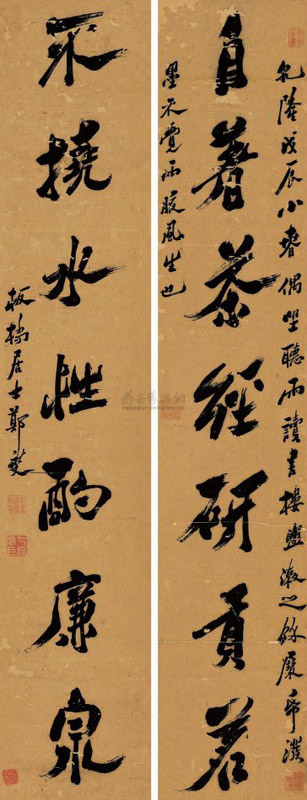 乾隆戊辰小春偶坐聽雨讀書樓盥漱之餘麋弗潑
墨不覺兩腋風生也
自著茶經研貢茗
不撓水性酌廉泉
板橋居士鄭燮